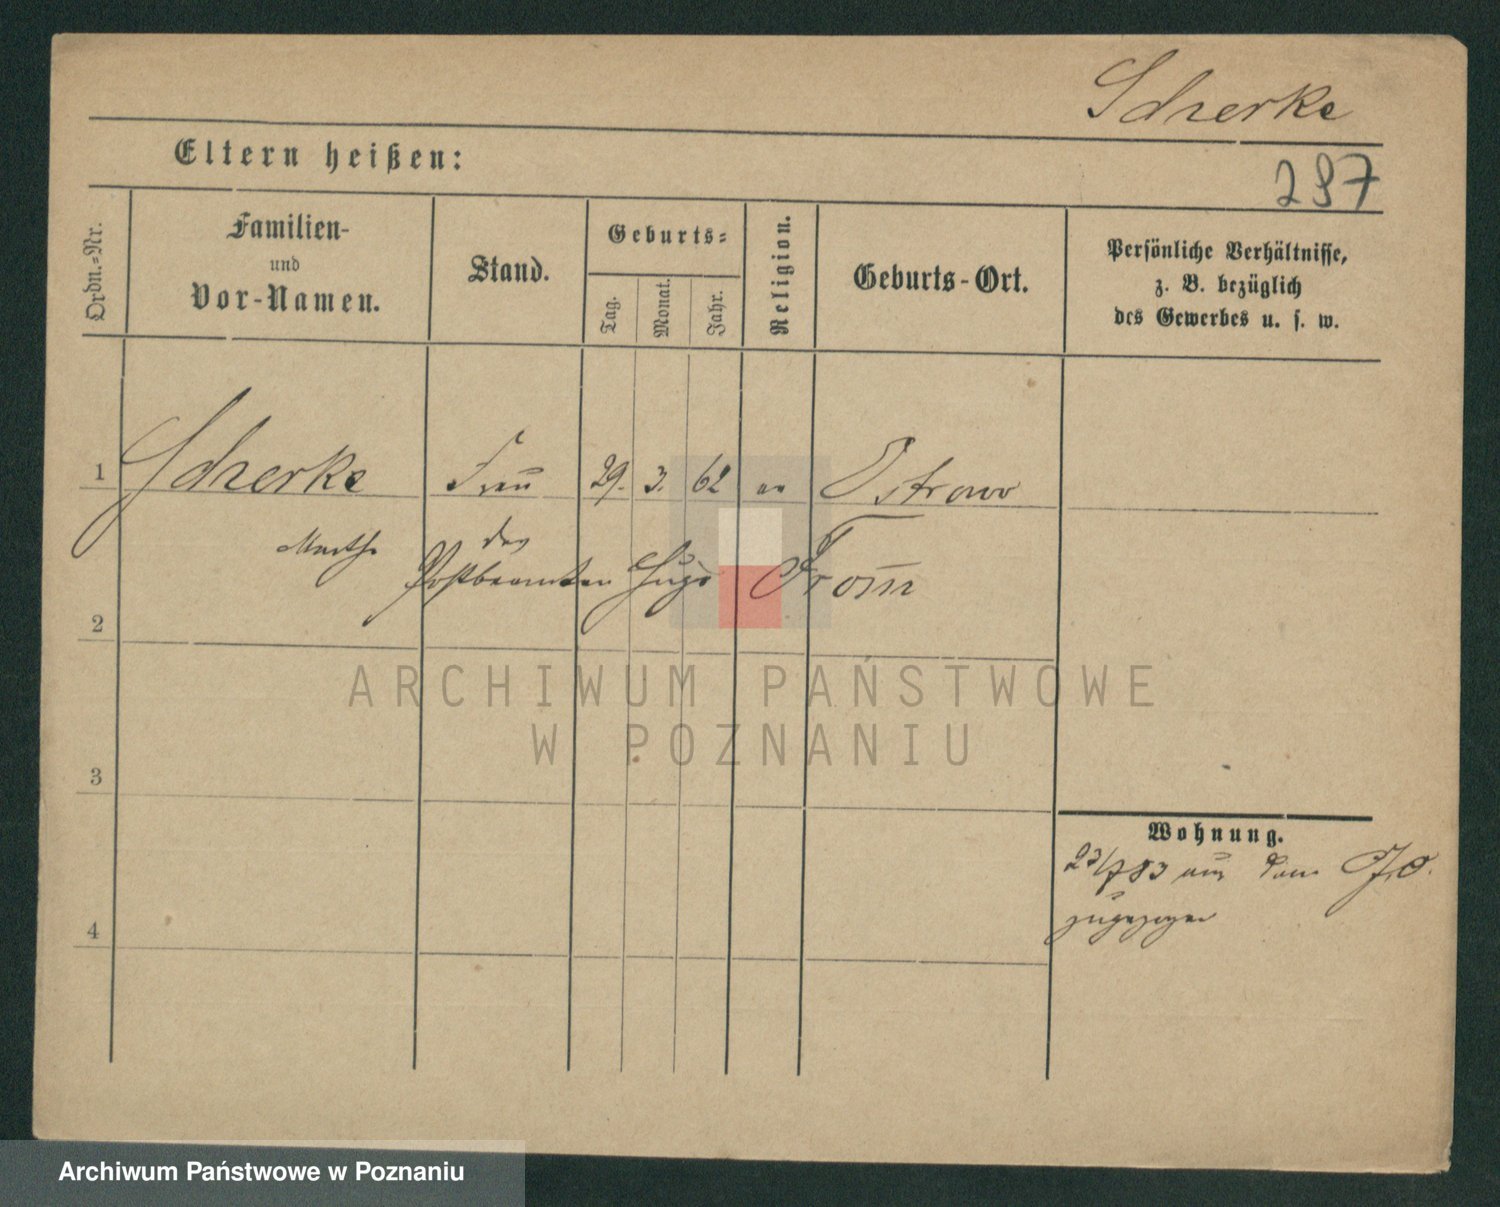 Scherke
Eltern heißen:
237
Ordn.-Nr.
Familien-
und
Vor-Namen.
Stand.
Geburts-
Tag.
Monat.
Jahr.
Religion.
Geburts-Ort.
Persönliche Verhältnisse,
z. B. bezüglich
des Gewerbes u. s. w.
1
Scherke
Frau
29. 3. 62
ev
Ostrowo
Martha
des
Postbeamten Hugo From̄
2
ARCHIWUM PAŃSTWOWE
W POZNANIU
3
Wohnung.
23/7 83 aus dem J.O.
zugezogen
4
Archiwum Państwowe w Poznaniu